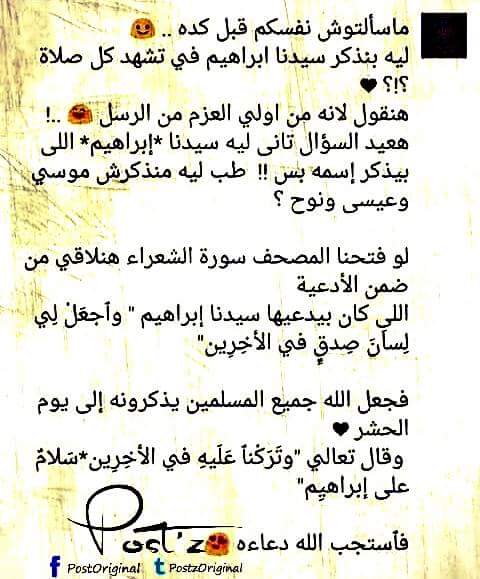 ماسألتوش نفسكم قبل كده ..
ليه بنذكر سيدنا ابراهيم في تشهد كل صلاة
؟!؟ ♥
هنقول لانه من اولي العزم من الرسل ..!
هعيد السؤال تانى ليه سيدنا *إبراهيم* اللى
بيذكر إسمه بس !! طب ليه منذكرش موسي
وعيسى ونوح ؟
لو فتحنا المصحف سورة الشعراء هنلاقي من
ضمن الأدعية
اللي كان بيدعيها سيدنا إبراهيم " وٱجعَلْ لِي
لِسانَ صِدقٍ في الأخِرِين"
فجعل الله جميع المسلمين يذكرونه إلى يوم
الحشر ♥
وقال تعالي "وتَرَكْناَ عَلَيهِ في الأخِرِين*سَلامٌ
على إبراهيِم"
فٱستجب الله دعاءه
Post'z
PostOriginal PostzOriginal